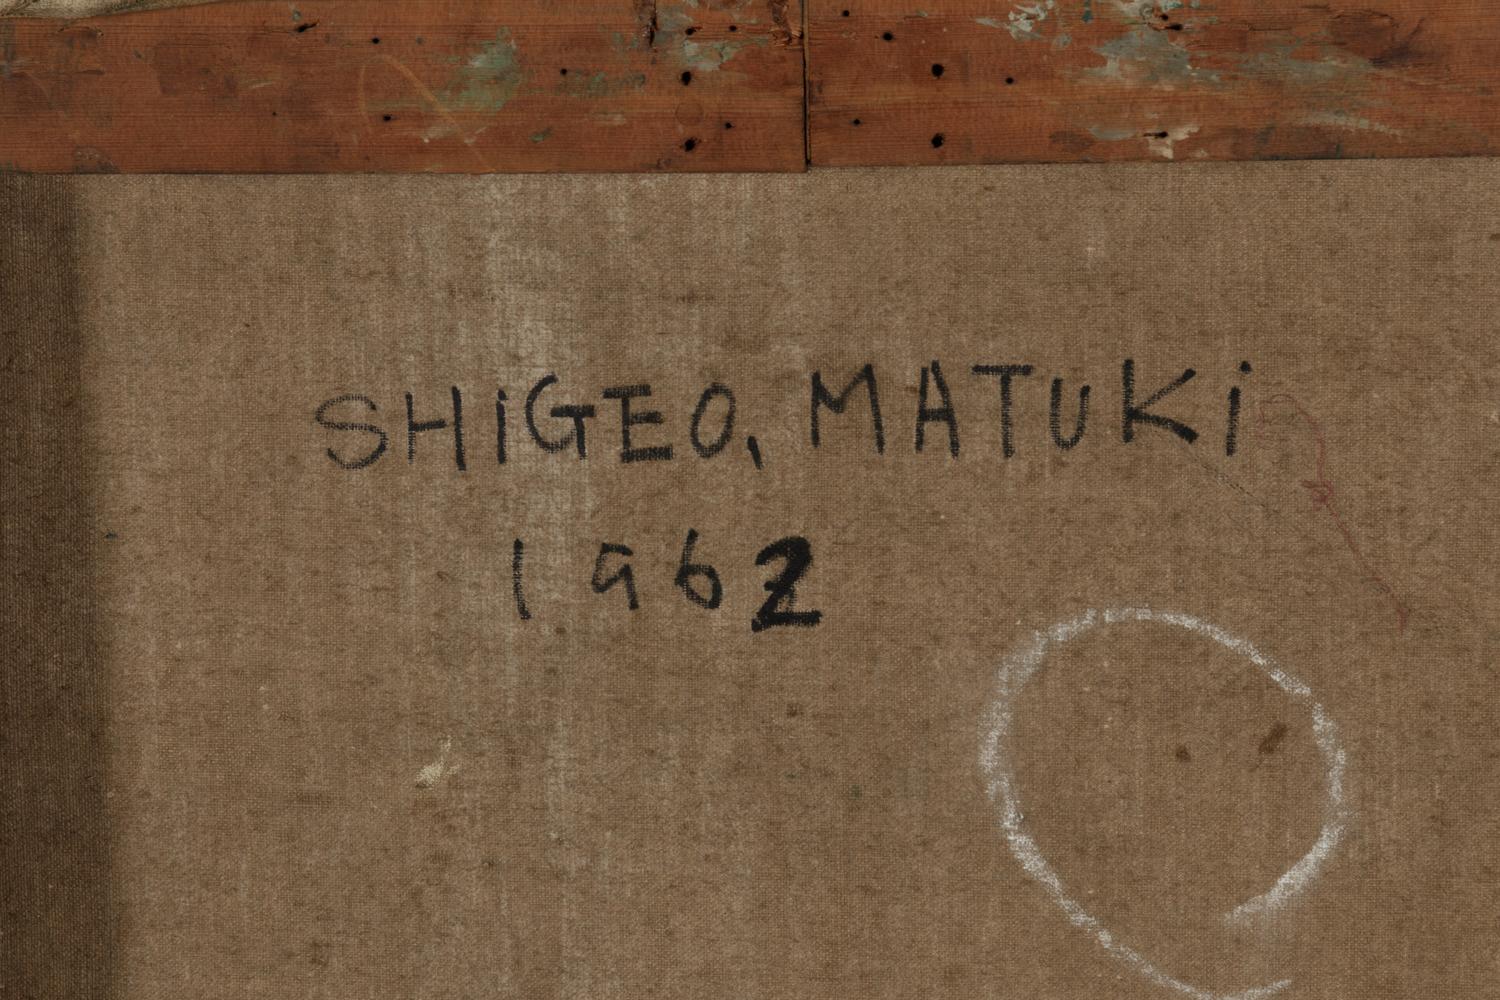 SHiGEO, MATUKi
1962